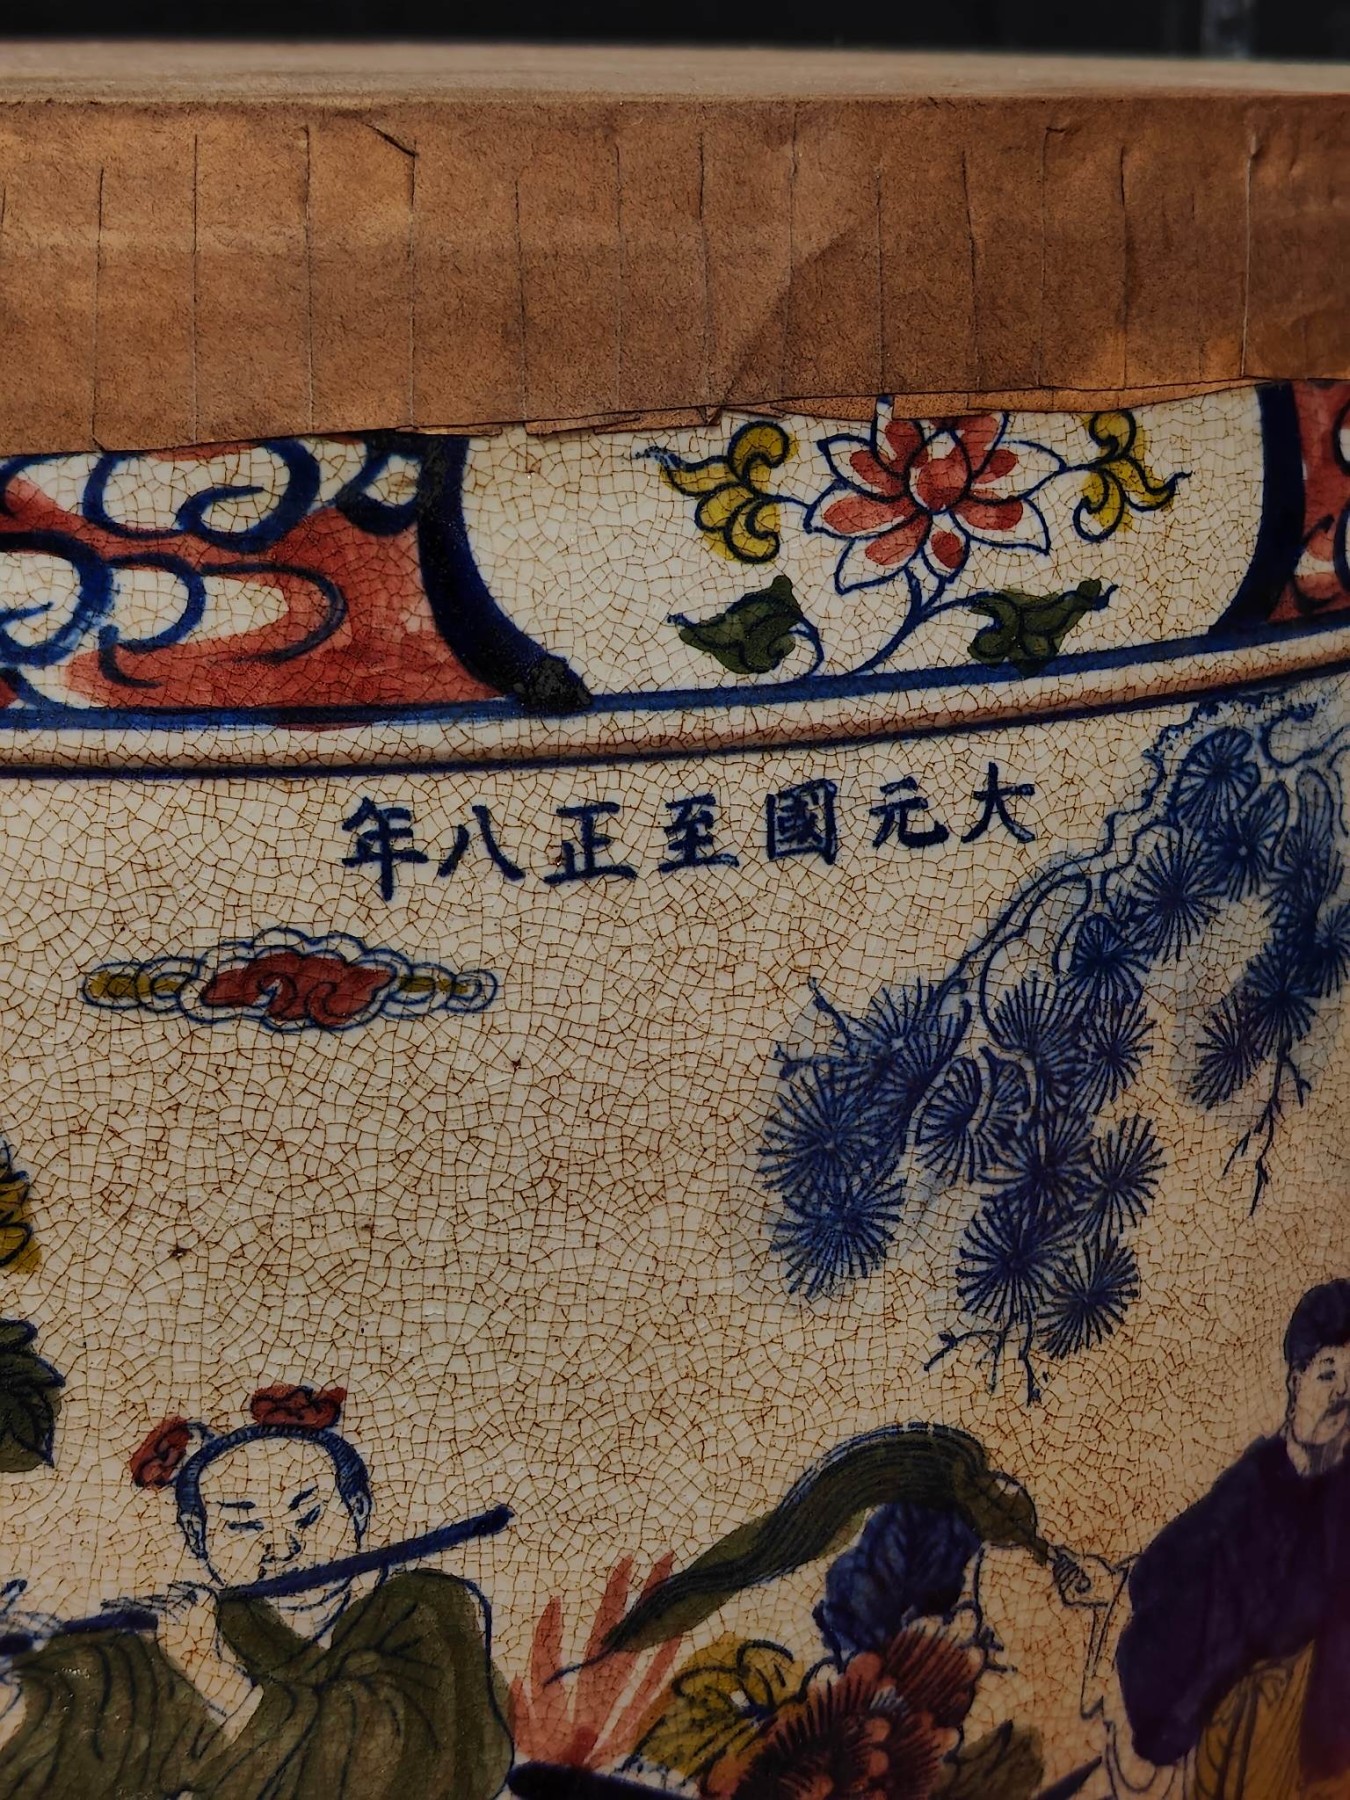 大元國至正八年